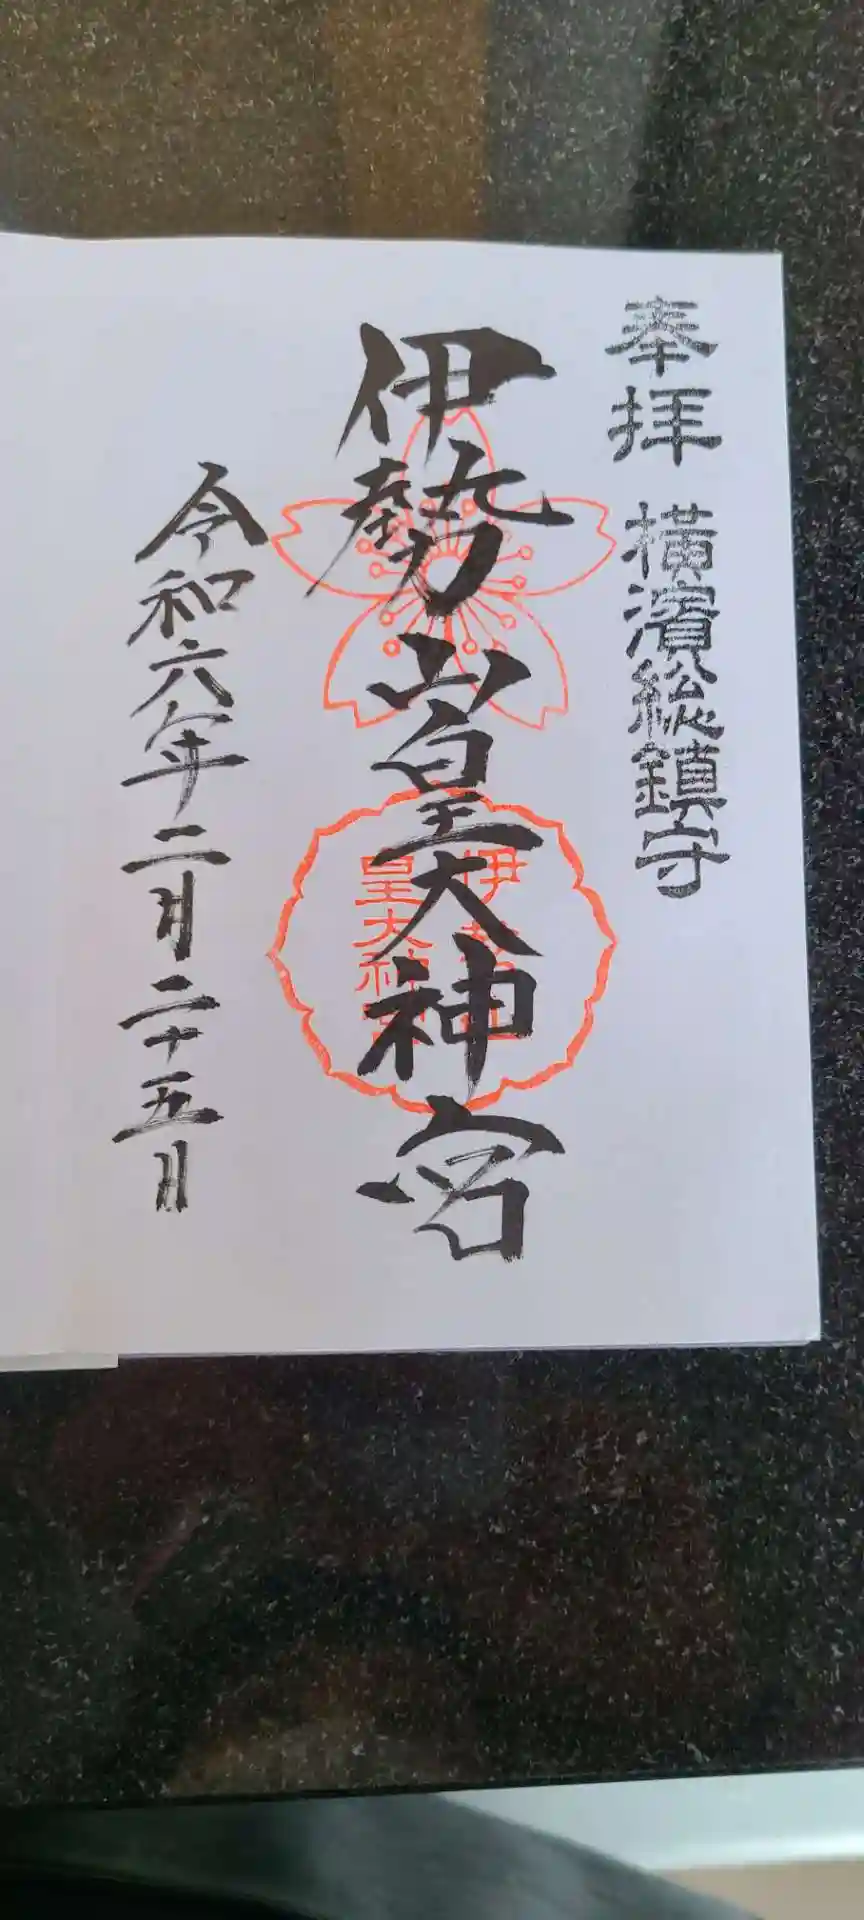 奉拝
横濱総鎮守
伊勢山皇大神宮
伊勢山
皇大神宮
令和六年二月二十五日